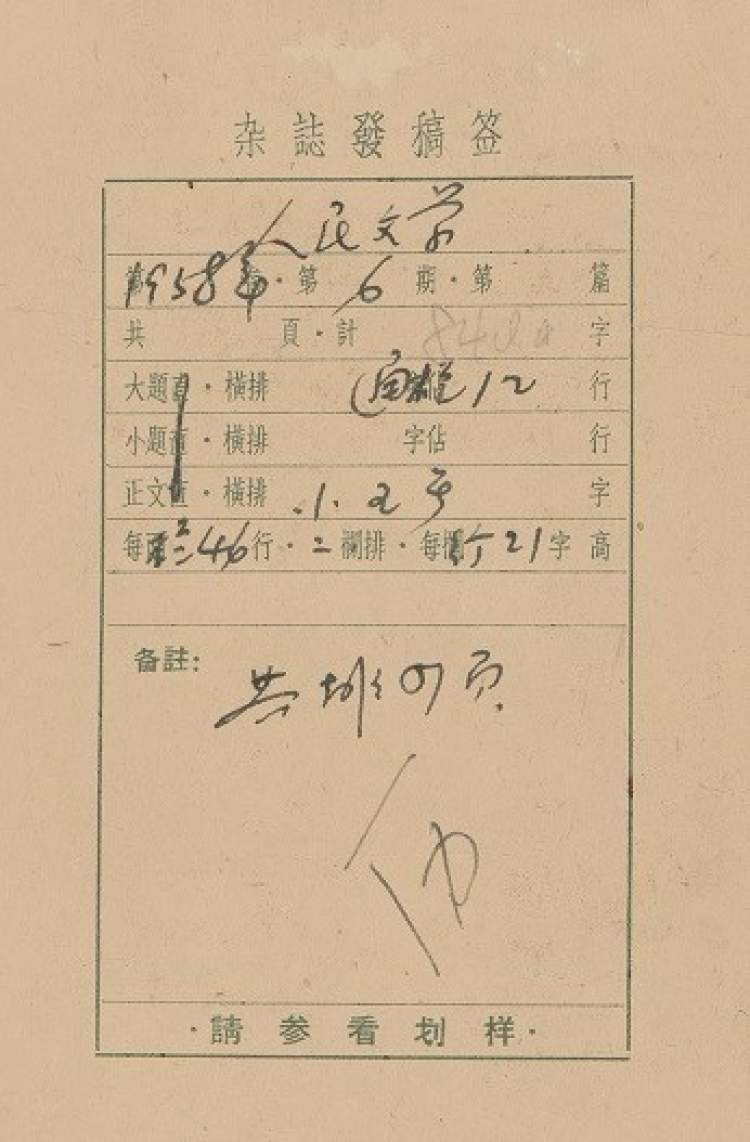 杂誌發稿签
人民文学
1958年·第6期·第 篇
共 頁·計 字
大題直·横排 通栏12行
小題直·横排 字佔 行
正文直·横排 小五号 字
每 46行·二欄排·每欄 21字高
备註:
共排四页
·請参看划样·